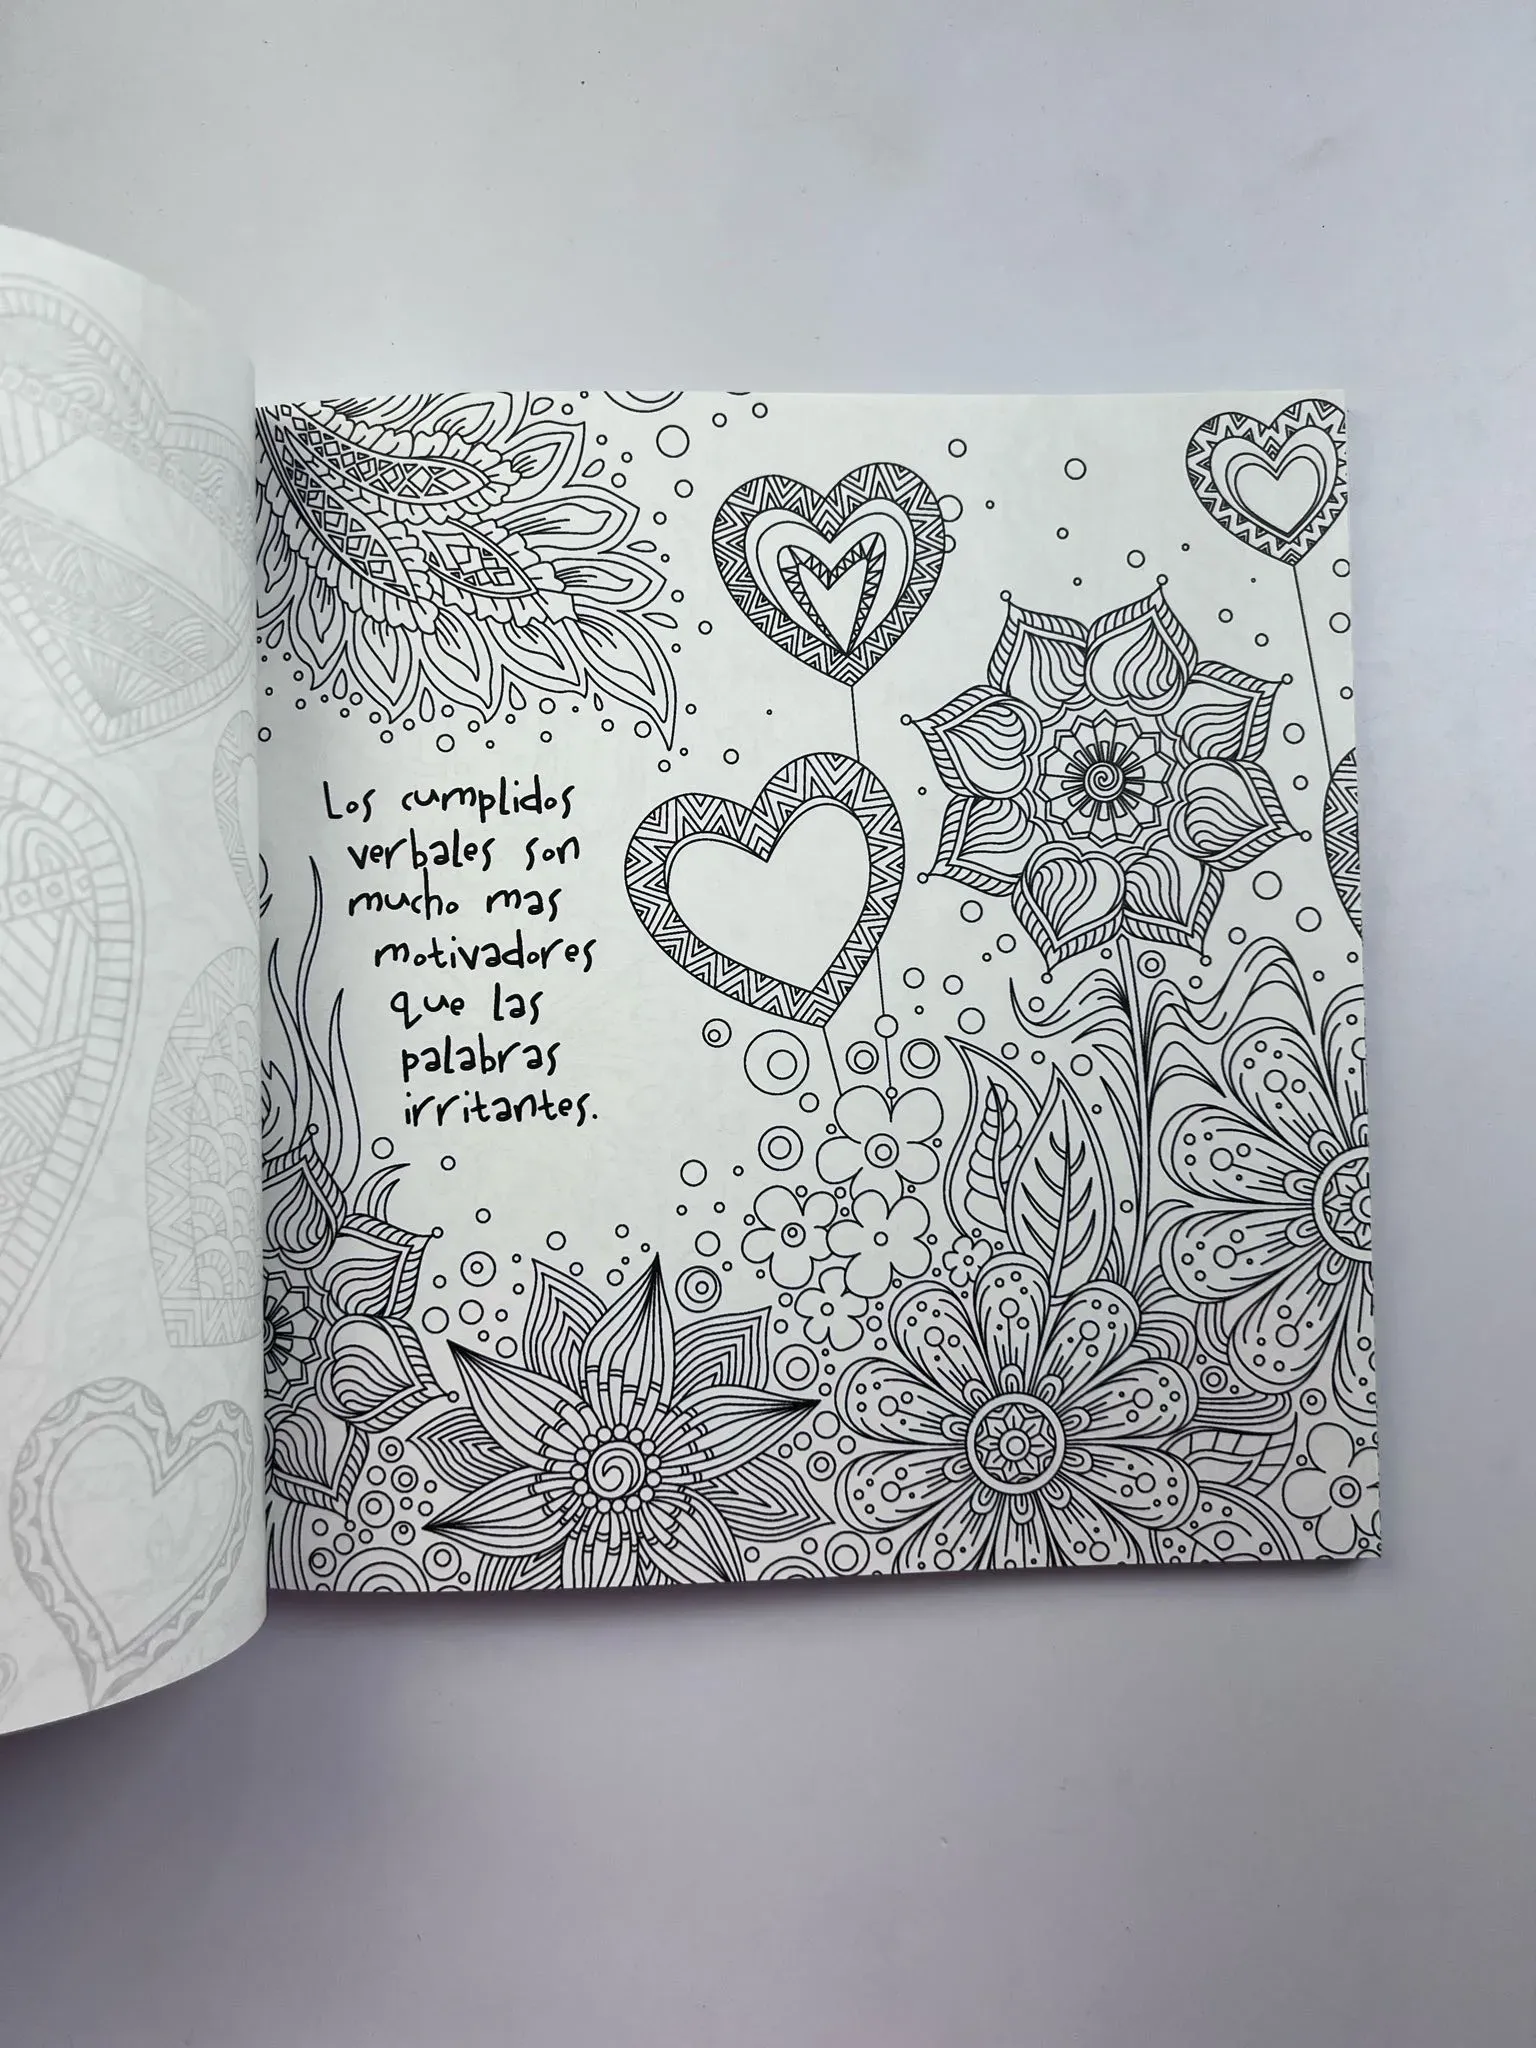 Los cumplidos
verbales son
mucho mas
motivadores
que las
palabras
irritantes.